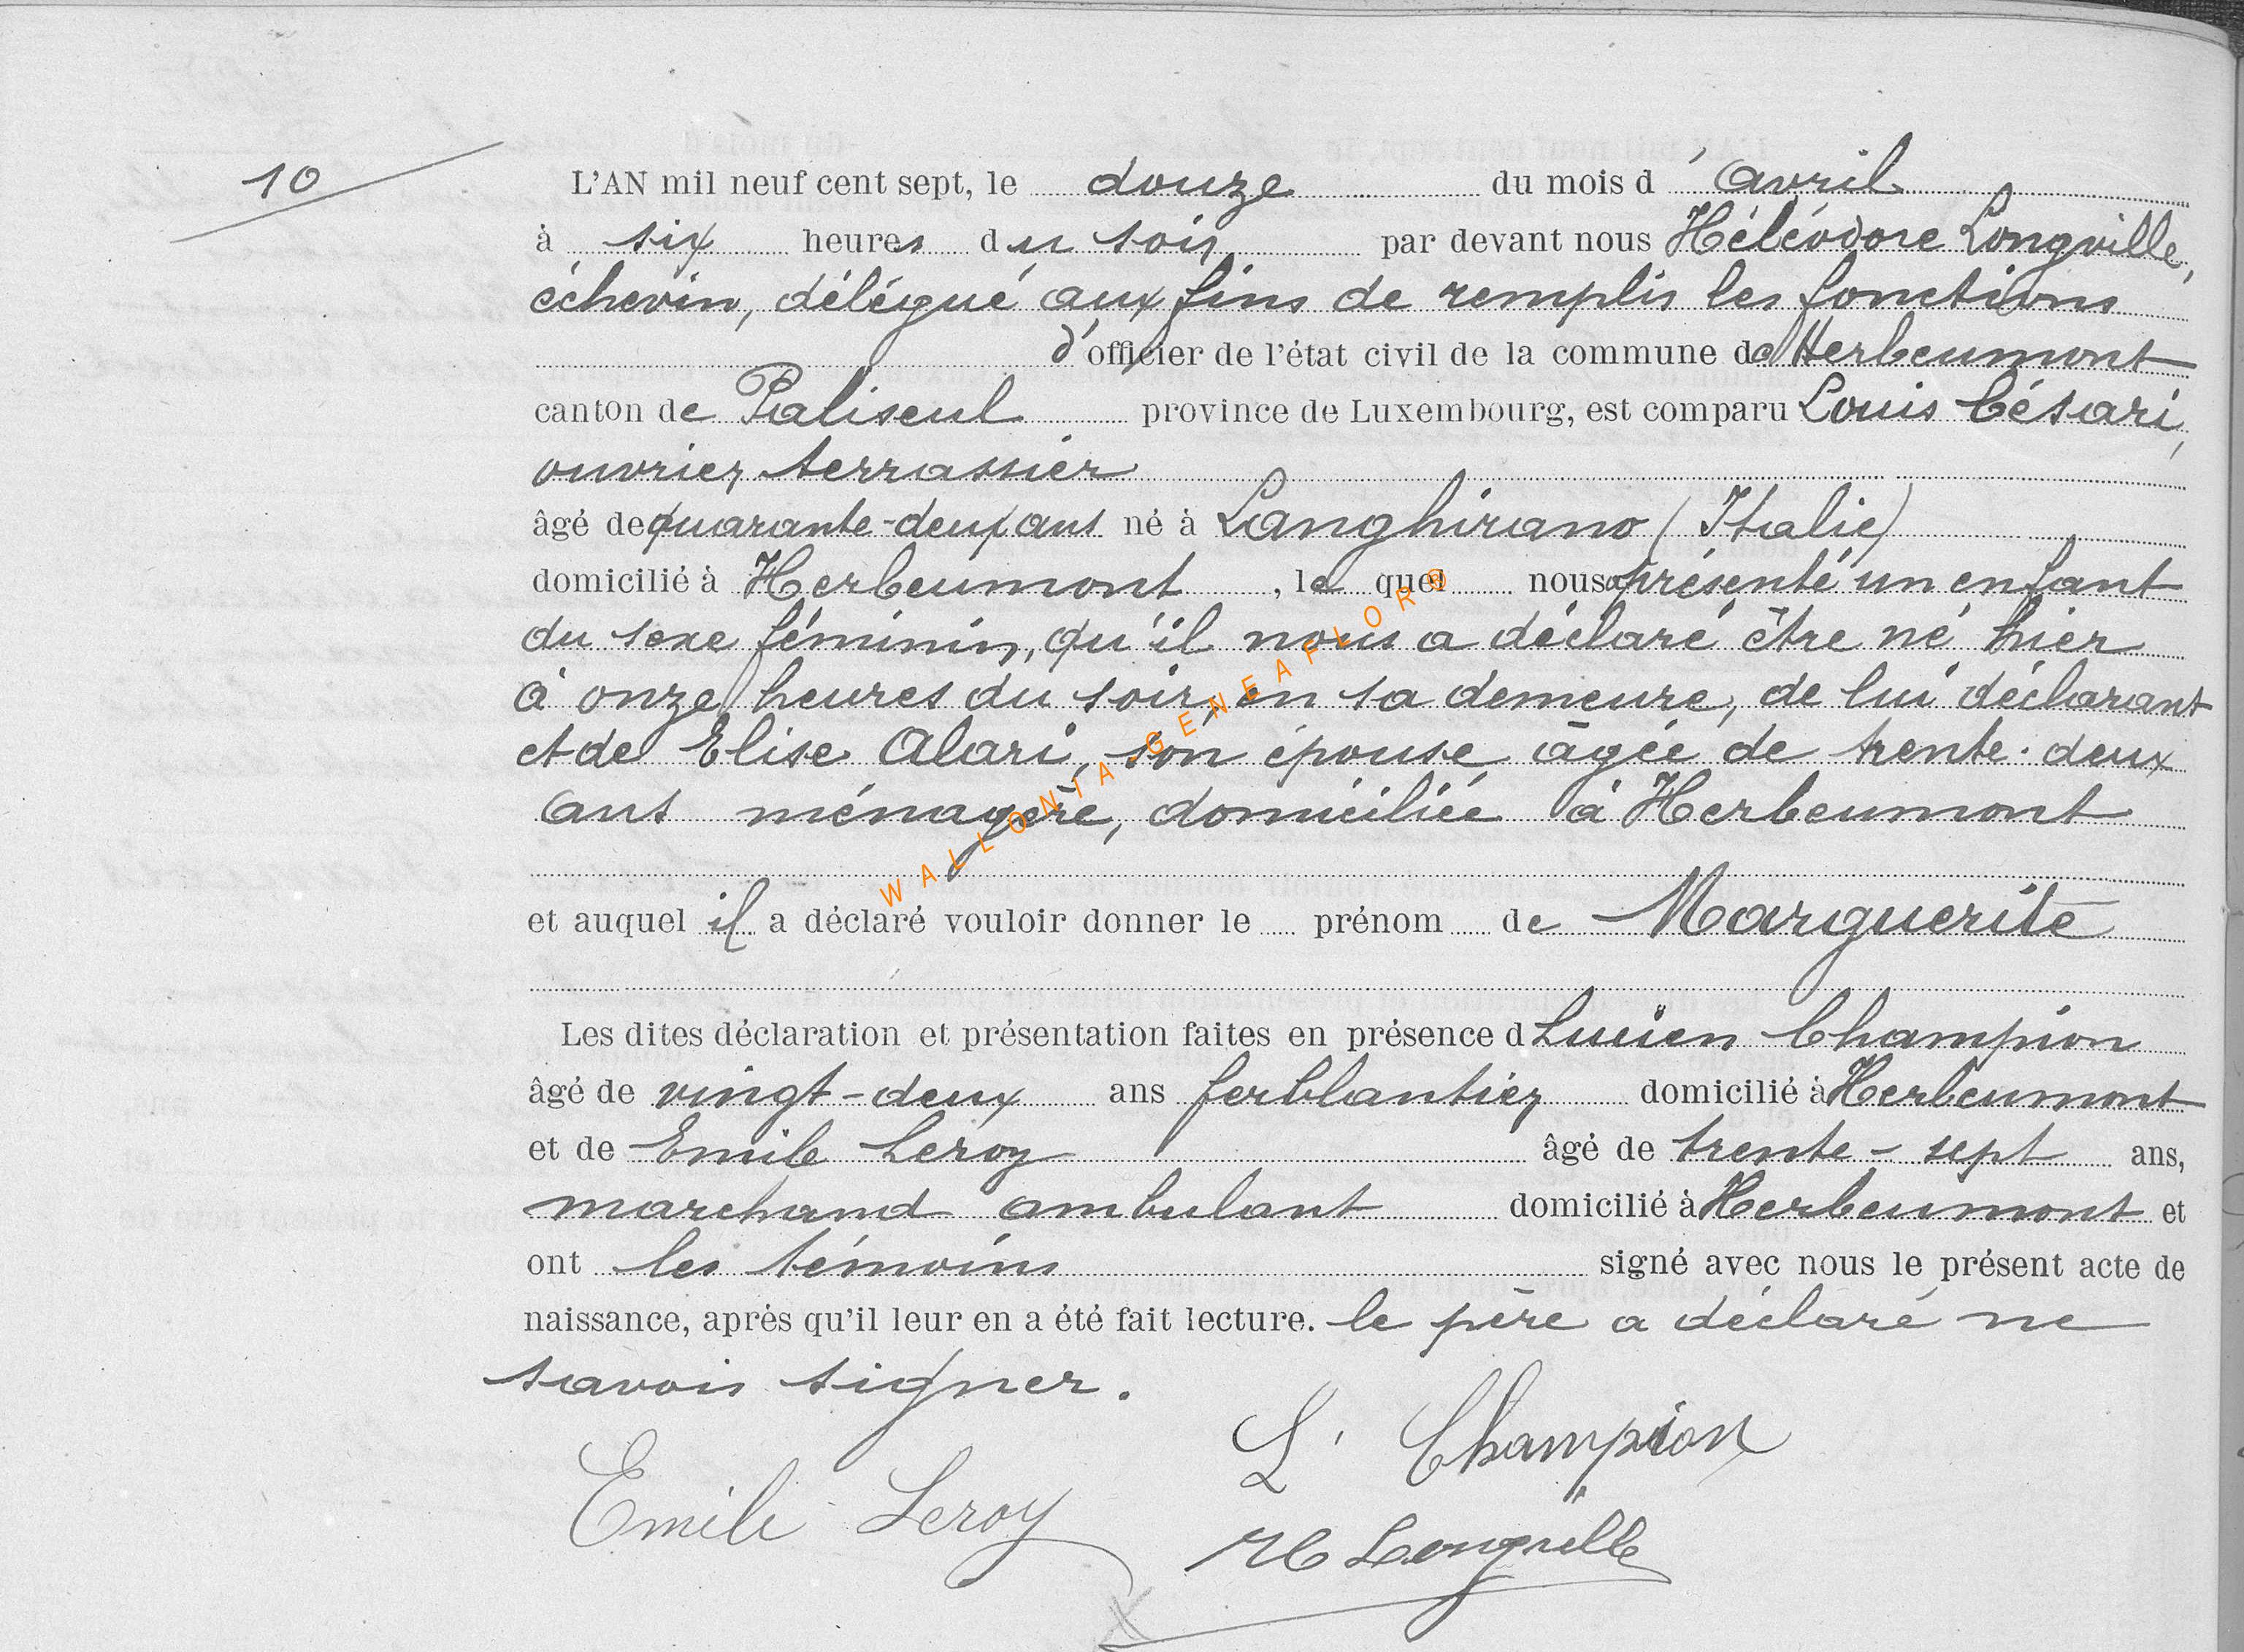 10
L'AN mil neuf cent sept, le douze du mois d'avril
à six heures du soir par devant nous Héléodore Longville,
échevin, délégué aux fins de remplir les fonctions
d'officier de l'état civil de la commune de Herbeumont
canton de Paliseul province de Luxembourg, est comparu Louis Césari,
ouvrier terrassier
âgé de quarante-deux ans né à Langhirano (Italie)
domicilié à Herbeumont, le quel nous a présenté un enfant
du sexe féminin, qu'il nous a déclaré être né hier
à onze heures du soir, en sa demeure, de lui déclarant
et de Elise Alari, son épouse âgée de trente-deux
ans ménagère, domiciliée à Herbeumont
et auquel il a déclaré vouloir donner le prénom de Marguerite
Les dites déclaration et présentation faites en présence d Lucien Champion
âgé de vingt-deux ans ferblantier domicilié à Herbeumont
et de Emile Leroy âgé de trente-sept ans,
marchand ambulant domicilié à Herbeumont et
ont les témoins signé avec nous le présent acte de
naissance, après qu'il leur en a été fait lecture. le père a déclaré ne
savoir signer.
L. Champion
Emile Leroy
H Longville
WALLONIA-GENEAFLOR®